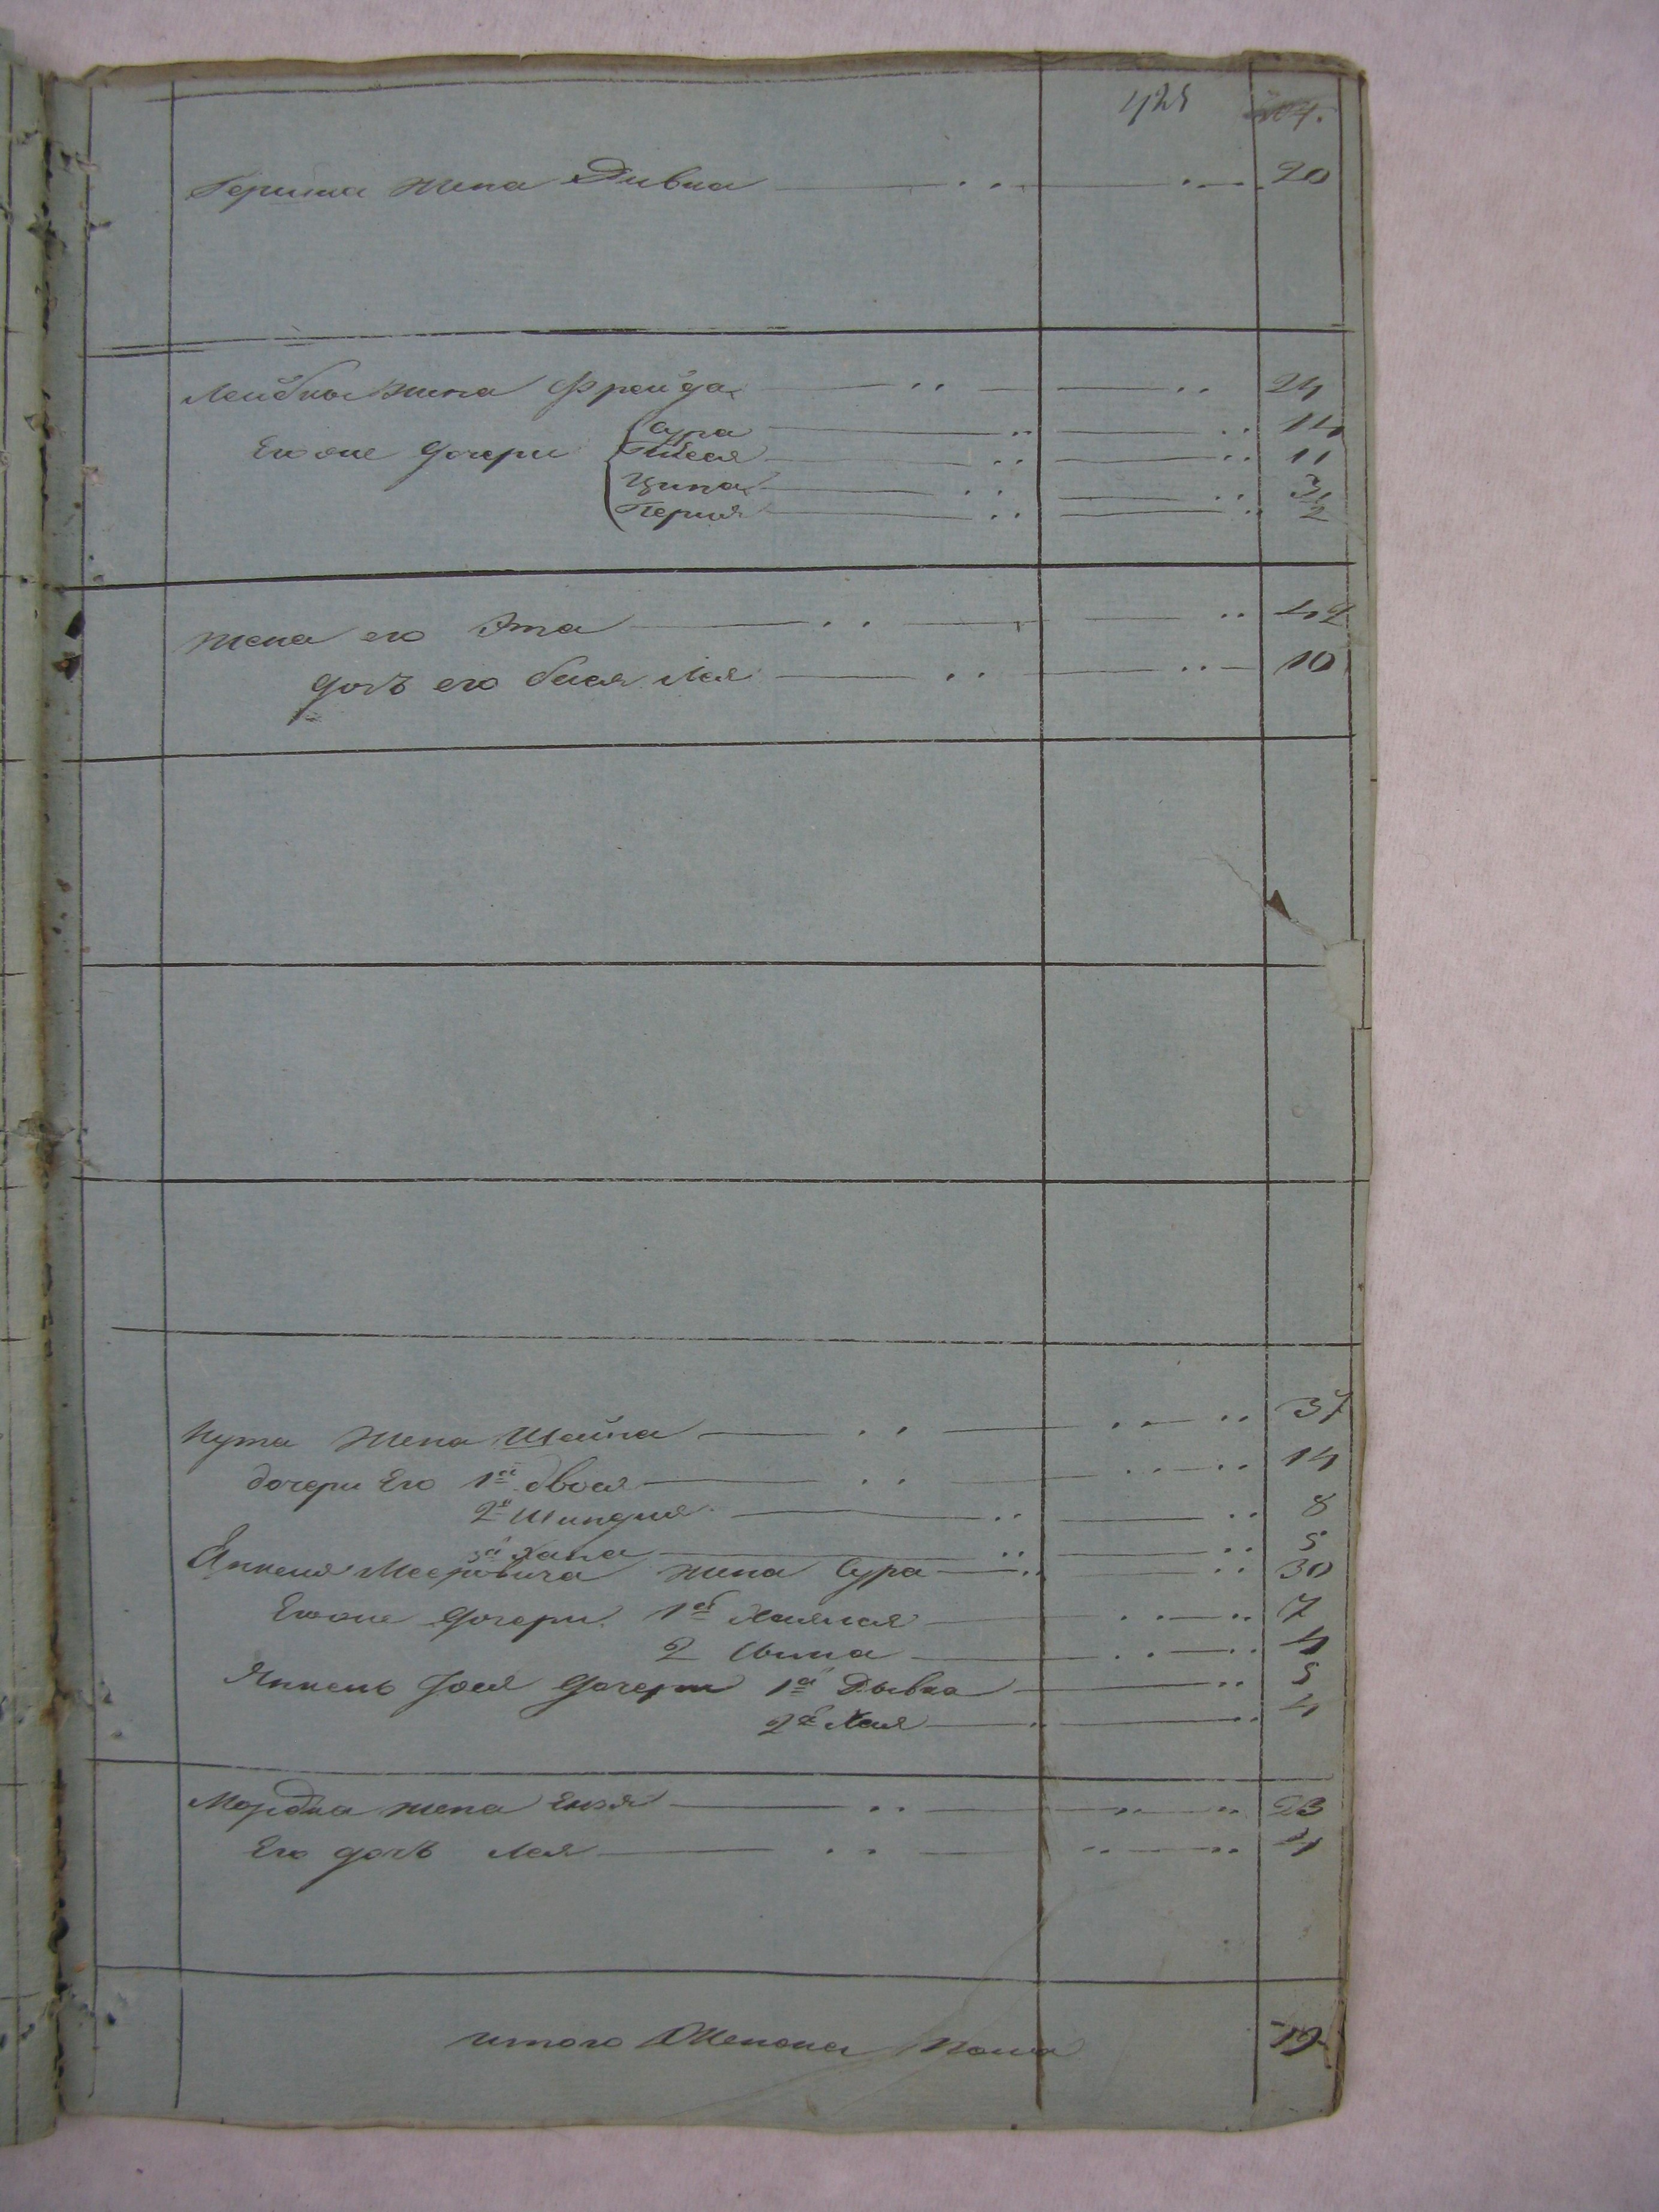 425
Гершка жена Ривка 20
Лейбки жена Фрейда 24
Ею оне дочери Сура 14
11
Ципа 3
Перля 1/2
Жена его Эта 42
дочь его бася Лея 10
Нута жена Шейна 37
дочери Его 1я двося 14
2я Шиндля 8
3я Хана 5
Янкеля Мееровича жена Сура 30
дочери 1я 7
2 4
Янкель дочери 1я Дывка 5
2я Хая 4
Мордка жена Ензя 23
Его дочь Лея 4
итого Женска Пола 19